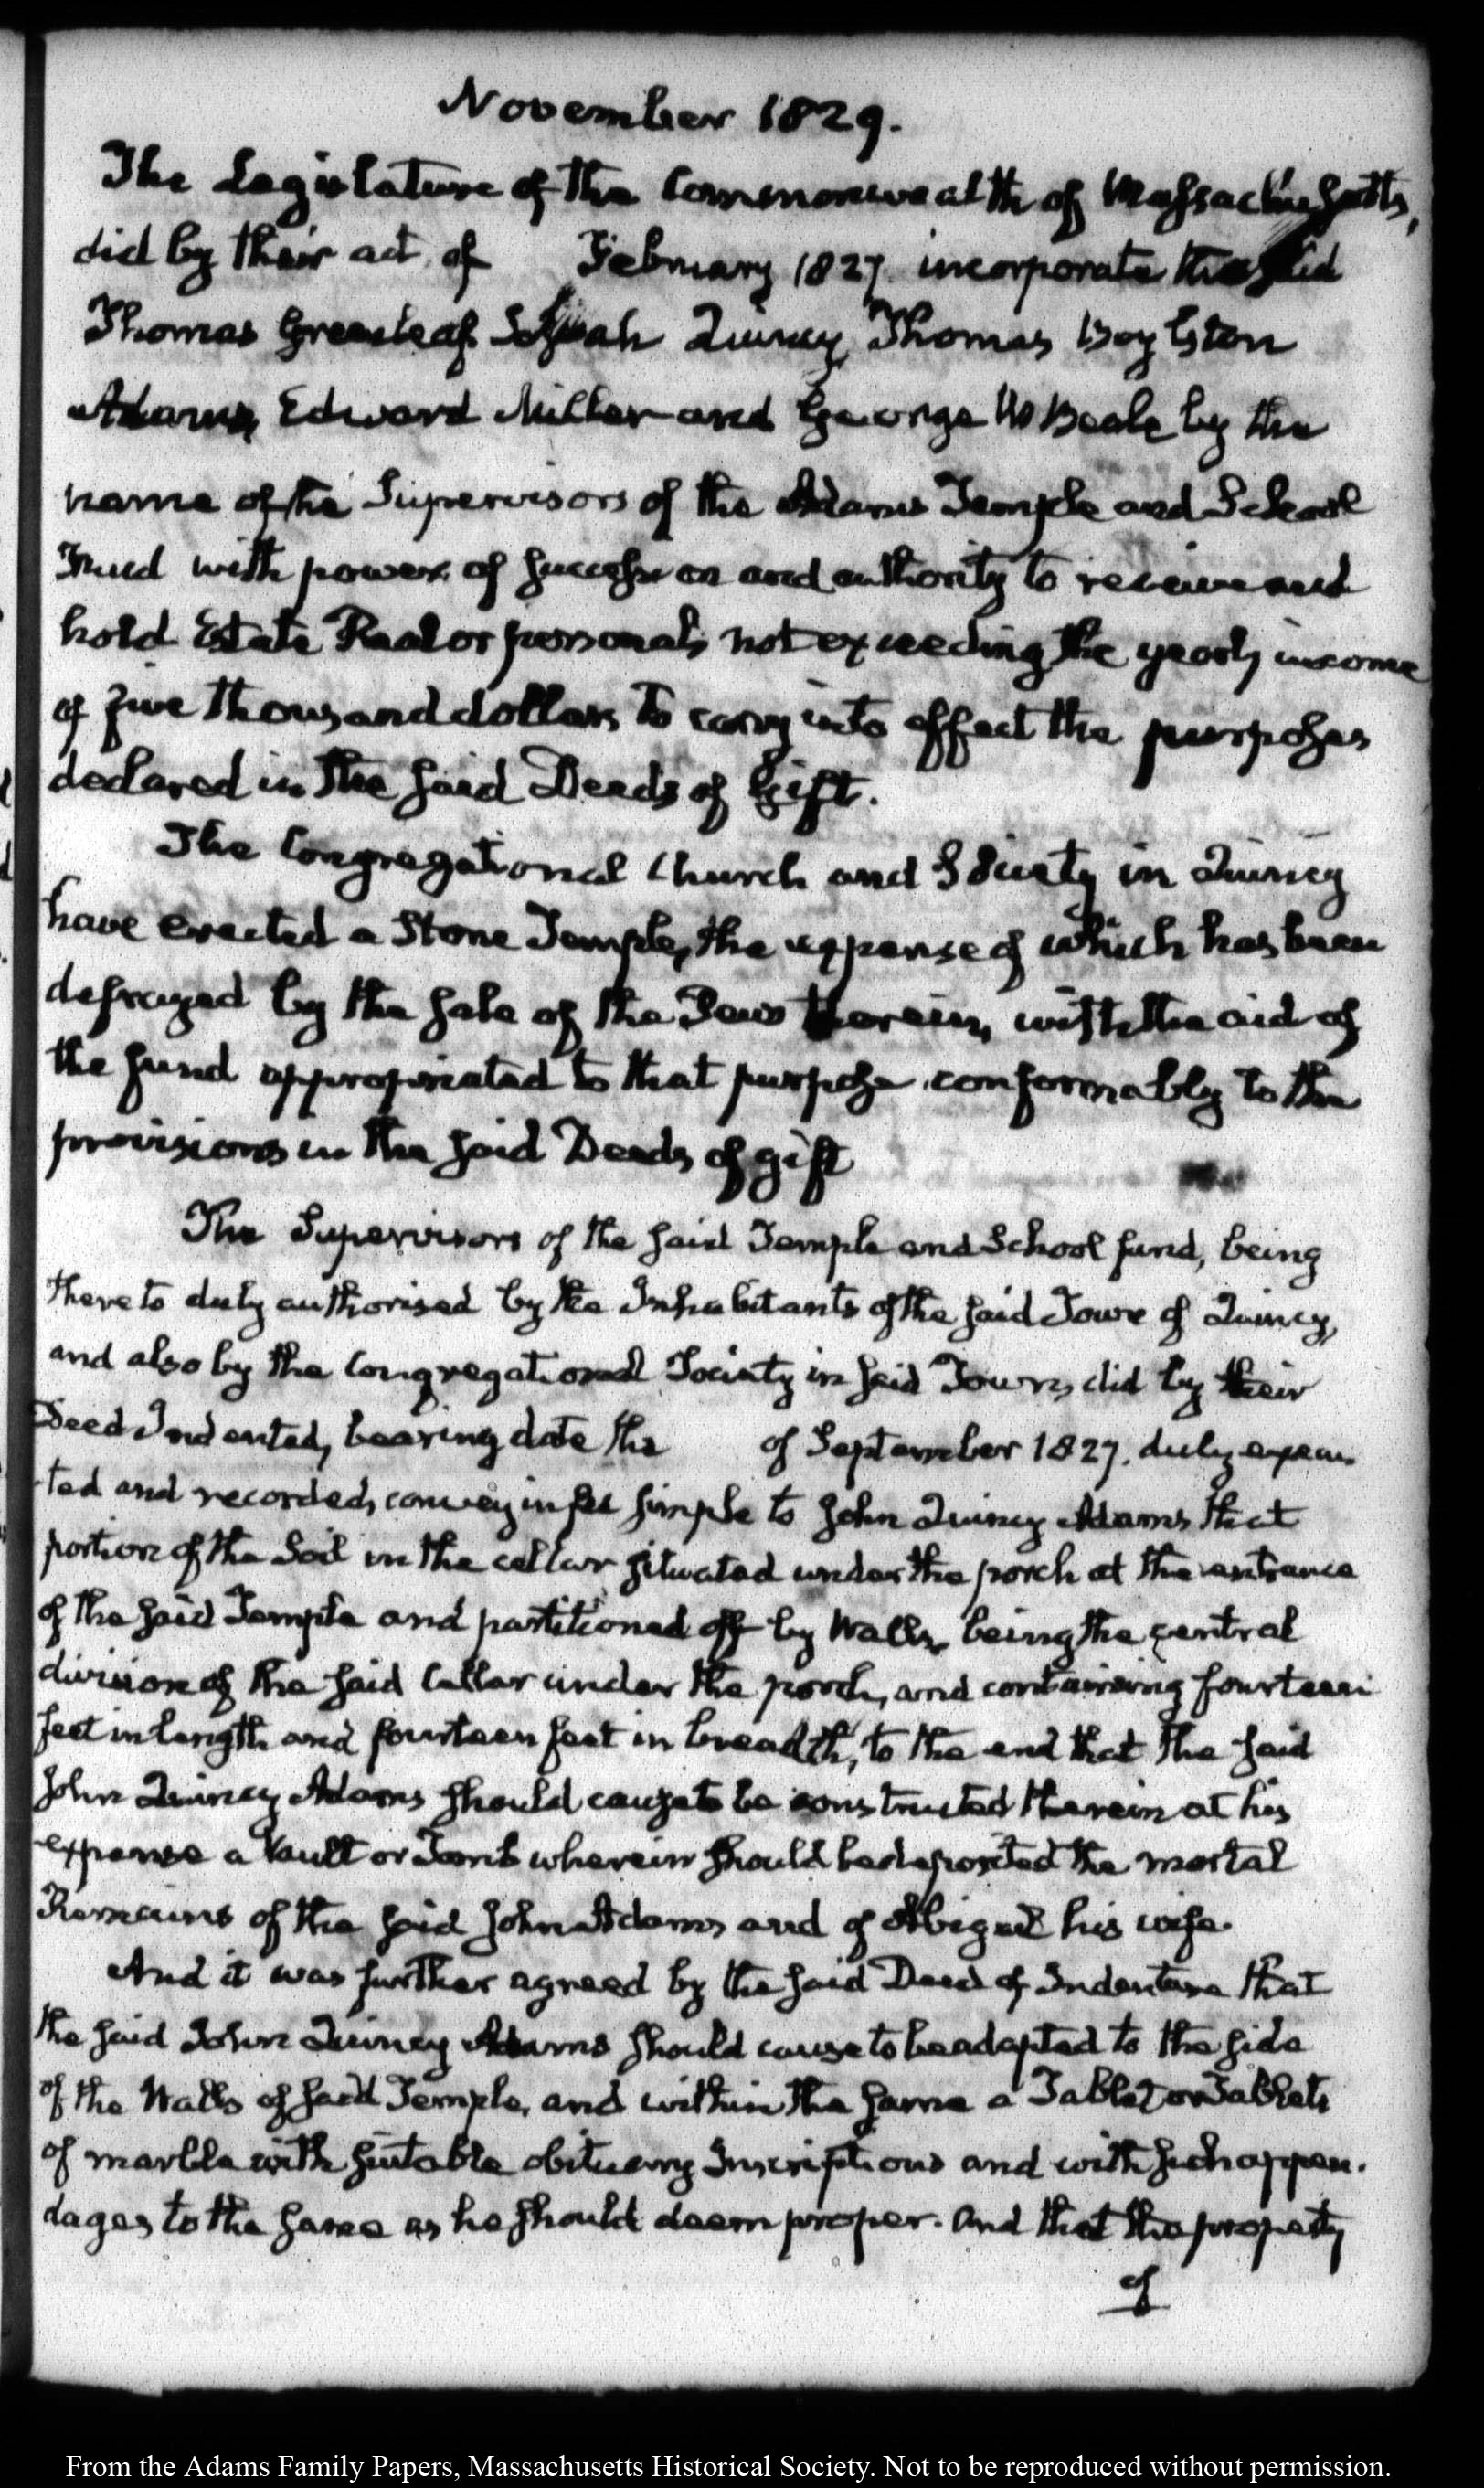 November 1829.
The Legislature of the Commonwealth of Massachusetts,
did by their act of February 1827. incorporate the said
Thomas Greenleaf Josiah Quincy, Thomas Boylston
Adams, Edward Miller and George W Beale by the
name of the Supervisors of the Adams Temple and School
Fund with power of succession and authority to receive and
hold Estate Real or personal, not exceeding the yearly income
of five thousand dollars to carry into effect the purposes
declared in the said Deeds of Gift.
The Congregational Church and Society in Quincy
have erected a Stone Temple, the expense of which has been
defrayed by the sale of the Pews therein, with the aid of
the fund appropriated to that purpose conformably to the
provisions in the said Deeds of gift
The Supervisors of the said Temple and School fund, being
thereto duly authorised by the Inhabitants of the said Town of Quincy,
and also by the Congregational Society in said Town, did by their
Deed Indented, bearing date the of September 1827. duly execu-
-ted and recorded, convey in fee simple to John Quincy Adams that
portion of the Soil in the cellar situated under the porch at the entrance
of the said Temple and partitioned off by Walls, being the central
division of the said Cellar under the porch, and containing fourteen
feet in length and fourteen feet in breadth, to the end that the said
John Quincy Adams should cause to be constructed therein at his
expense a Vault or Tomb wherein should be deposited the mortal
Remains of the said John Adams and of Abigail his wife.
And it was further agreed by the said Deed of Indenture that
the said John Quincy Adams should cause to be adapted to the side
of the Walls of said Temple, and within the same a Tablet or Tablets
of marble with suitable obituary Inscriptions and with such appen-
dages to the same as he should deem proper. And that the property
of
From the Adams Family Papers, Massachusetts Historical Society. Not to be reproduced without permission.